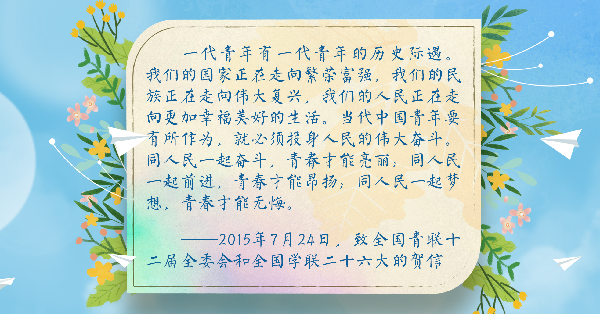 一代青年有一代青年的历史际遇。
我们的国家正在走向繁荣富强，我们的民
族正在走向伟大复兴，我们的人民正在走
向更加幸福美好的生活。当代中国青年要
有所作为，就必须投身人民的伟大奋斗。
同人民一起奋斗，青春才能亮丽；同人民
一起前进，青春才能昂扬；同人民一起梦
想，青春才能无悔。
——2015年7月24日，致全国青联十
二届全委会和全国学联二十六大的贺信